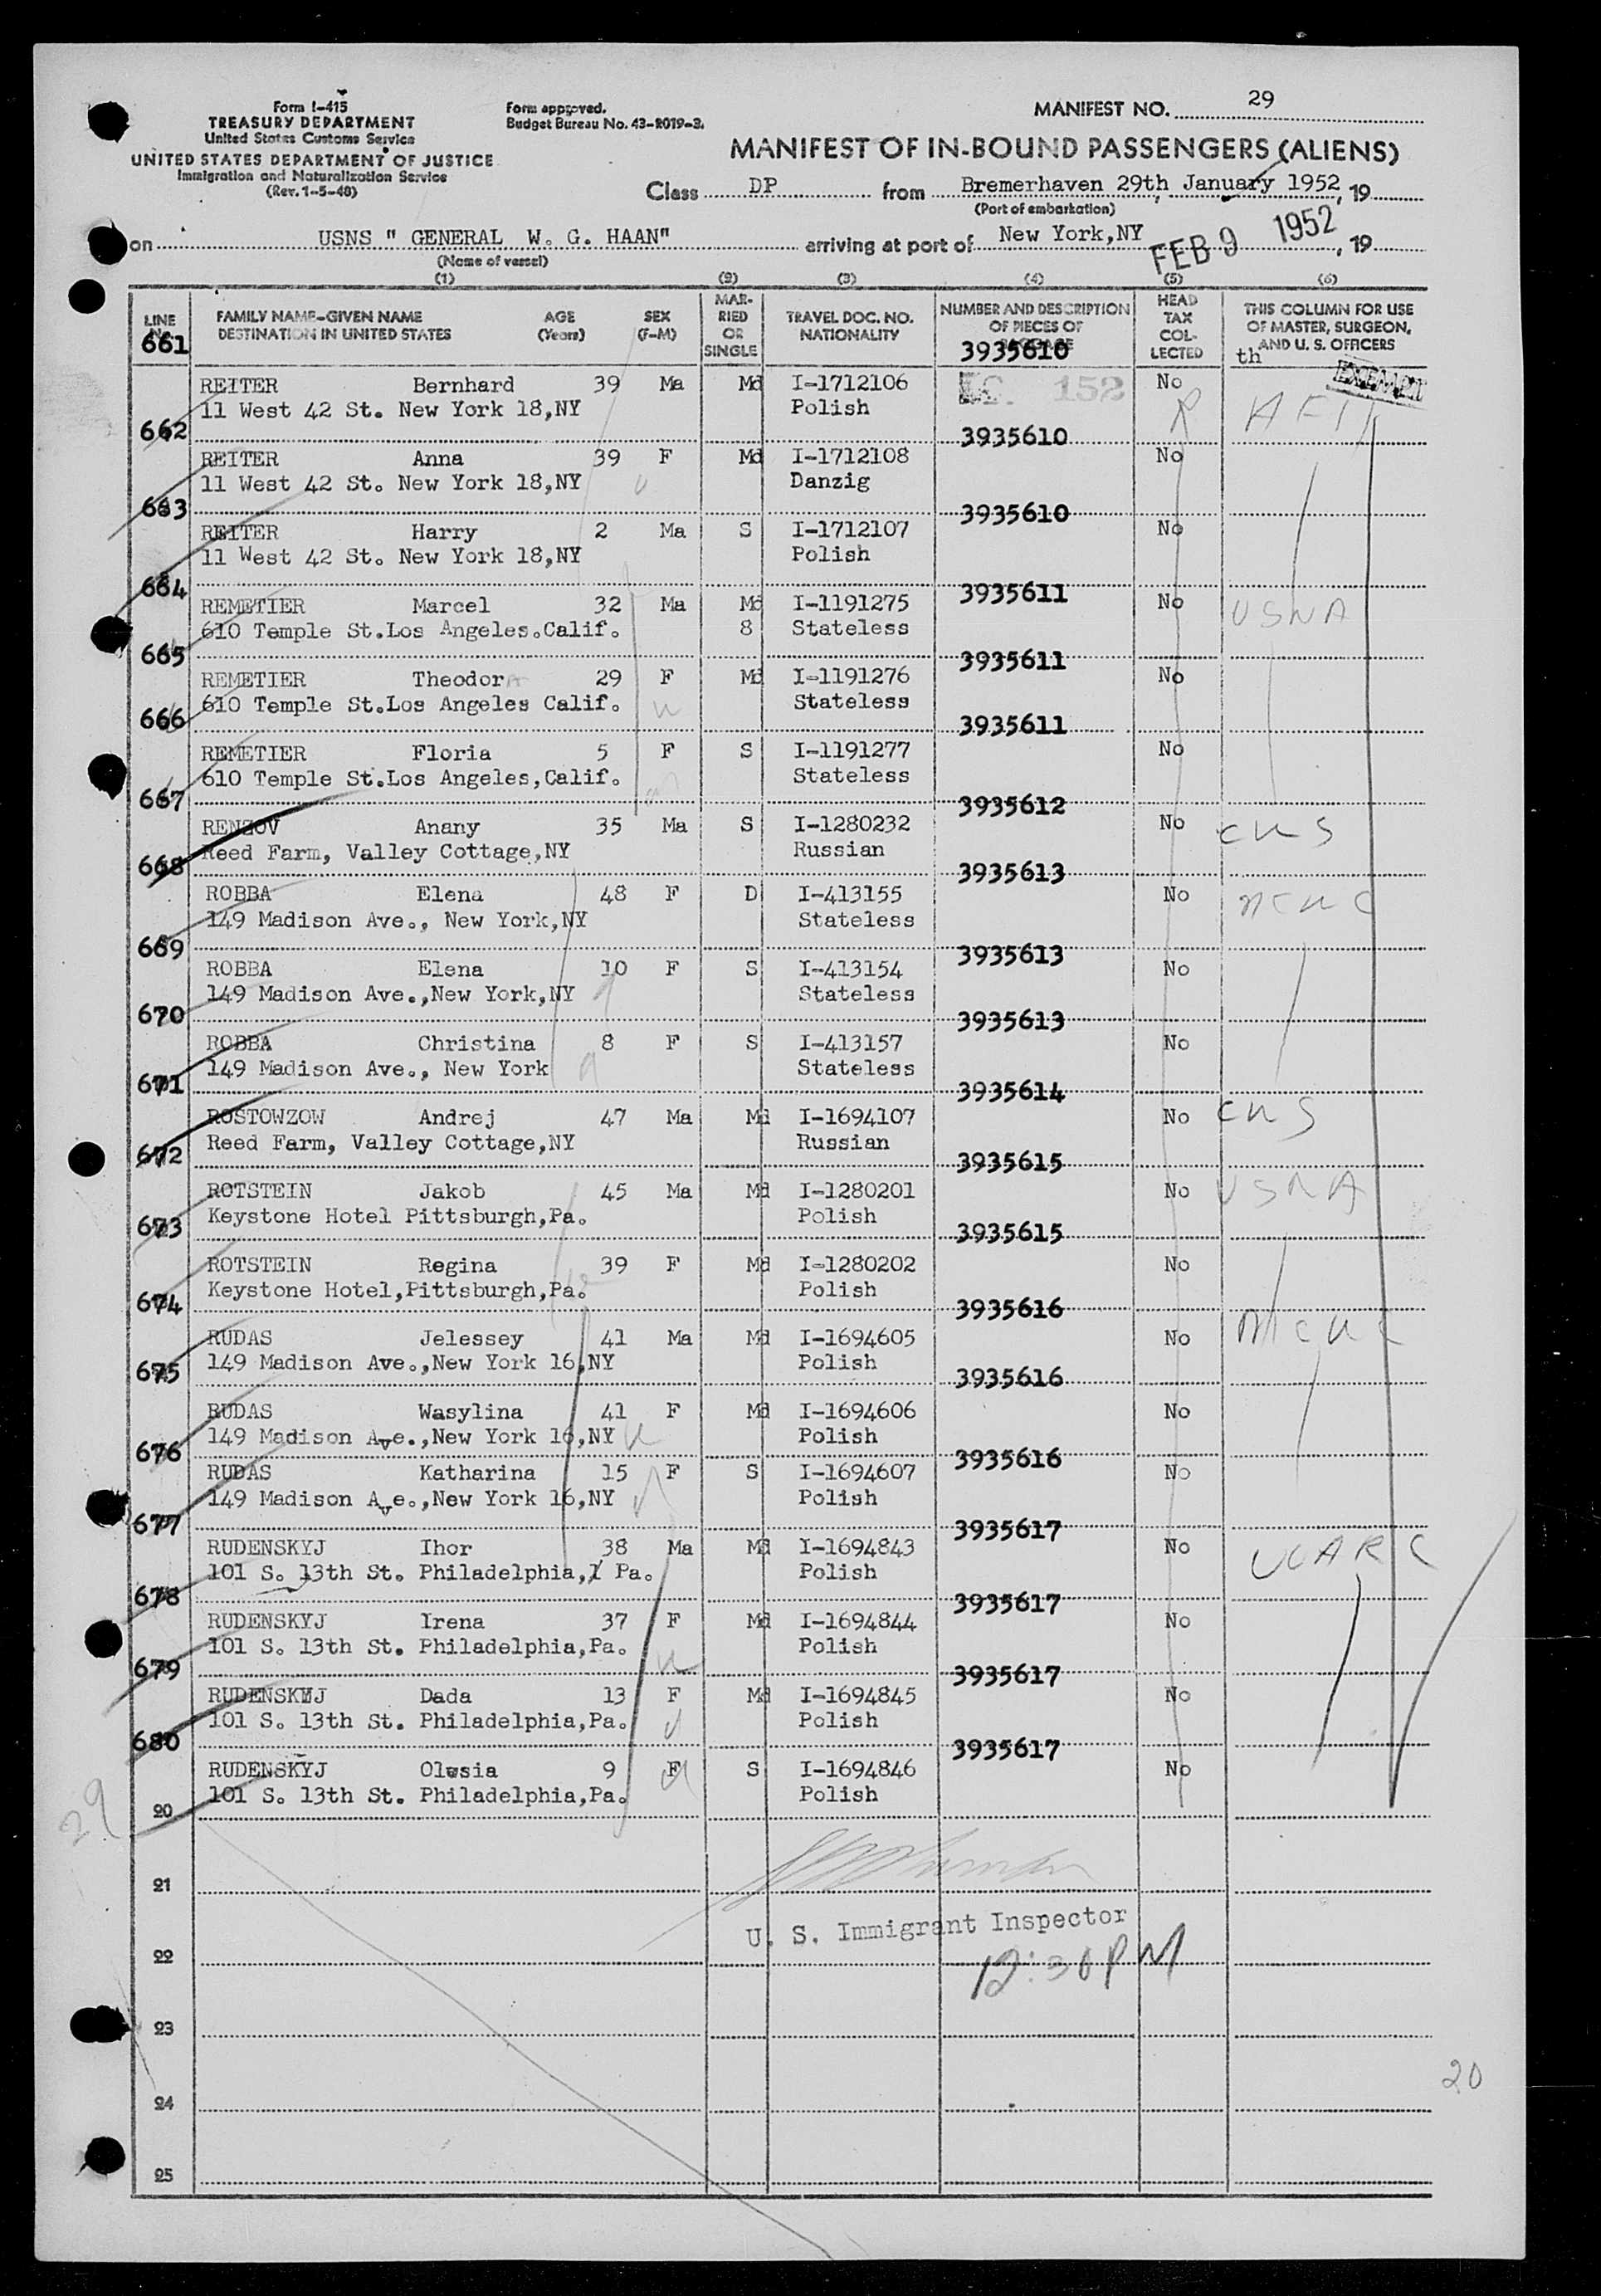 Form I-415
TREASURY DEPARTMENT
United States Customs Service
UNITED STATES DEPARTMENT OF JUSTICE
Immigration and Naturalization Service
(Rev. 1-5-48)
Form approved.
Budget Bureau No. 43-R019-3.
MANIFEST NO. 29
MANIFEST OF IN-BOUND PASSENGERS (ALIENS)
Class DP from Bremerhaven 29th January 1952, 19
(Port of embarkation)
on USNS " GENERAL W. G. HAAN" arriving at port of New York,NY FEB 9 1952, 19
(Name of vessel)
(1) (2) (3) (4) (5) (6)
LINE No. FAMILY NAME-GIVEN NAME DESTINATION IN UNITED STATES AGE (Years) SEX (F-M) MARRIED OR SINGLE TRAVEL DOC. NO. NATIONALITY NUMBER AND DESCRIPTION OF PIECES OF BAGGAGE HEAD TAX COLLECTED THIS COLUMN FOR USE OF MASTER, SURGEON, AND U. S. OFFICERS
661 3935610 th
REITER Bernhard 39 Ma Md I-1712106 152 No EXEMPT
11 West 42 St. New York 18,NY Polish
662 3935610
REITER Anna 39 F Md I-1712108 No
11 West 42 St. New York 18,NY Danzig
663 3935610
REITER Harry 2 Ma S I-1712107 No
11 West 42 St. New York 18,NY Polish
664 3935611
REMETIER Marcel 32 Ma Md I-1191275 No USNA
610 Temple St.Los Angeles.Calif. 8 Stateless
665 3935611
REMETIER Theodora 29 F Md I-1191276 No
610 Temple St.Los Angeles Calif. Stateless
666 3935611
REMETIER Floria 5 F S I-1191277 No
610 Temple St.Los Angeles,Calif. Stateless
667 3935612
RENZOV Anany 35 Ma S I-1280232 No CWS
Reed Farm, Valley Cottage,NY Russian
668 3935613
ROBBA Elena 48 F D I-413155 No NCWC
149 Madison Ave., New York,NY Stateless
669 3935613
ROBBA Elena 10 F S I-413154 No
149 Madison Ave.,New York,NY Stateless
670 3935613
ROBBA Christina 8 F S I-413157 No
149 Madison Ave., New York Stateless
671 3935614
ROSTOWZOW Andrej 47 Ma Md I-1694107 No CWS
Reed Farm, Valley Cottage,NY Russian
672 3935615
ROTSTEIN Jakob 45 Ma Md I-1280201 No USNA
Keystone Hotel Pittsburgh,Pa. Polish
673 3935615
ROTSTEIN Regina 39 F Md I-1280202 No
Keystone Hotel,Pittsburgh,Pa. Polish
674 3935616
RUDAS Jelessey 41 Ma Md I-1694605 No NCWC
149 Madison Ave.,New York 16,NY Polish
675 3935616
RUDAS Wasylina 41 F Md I-1694606 No
149 Madison Ave.,New York 16,NY Polish
676 3935616
RUDAS Katharina 15 F S I-1694607 No
149 Madison Ave.,New York 16,NY Polish
677 3935617
RUDENSKYJ Ihor 38 Ma Md I-1694843 No UCARC
101 S. 13th St. Philadelphia, Pa. Polish
678 3935617
RUDENSKYJ Irena 37 F Md I-1694844 No
101 S. 13th St. Philadelphia,Pa. Polish
679 3935617
RUDENSKYJ Dada 13 F Md I-1694845 No
101 S. 13th St. Philadelphia,Pa. Polish
680 3935617
RUDENSKYJ Olesia 9 F S I-1694846 No
101 S. 13th St. Philadelphia,Pa. Polish
29
20
21
U. S. Immigrant Inspector
22
12:30 PM
23
20
24
25